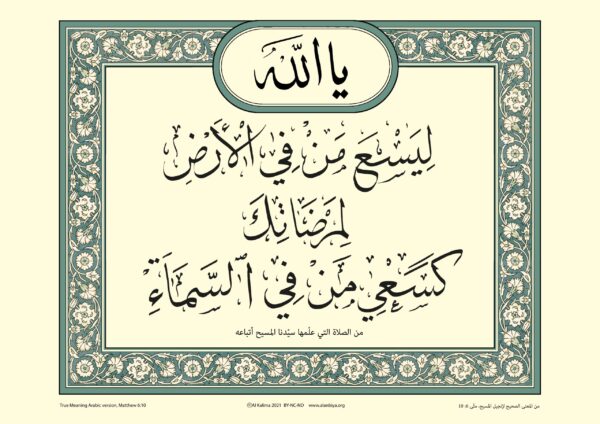 يا الله
لِيَسْعَ مَنْ فِي الْأَرْضِ
لِمَرْضَاتِكَ
كَسَعْيِ مَنْ فِي ٱلسَّمَاءِ
من الصلاة التي علّمها سيّدنا المسيح أتباعه
True Meaning Arabic version, Matthew 6:10
©Al Kalima 2021 BY-NC-ND www.alanbiya.org
من المعنى الصحيح لإنجيل المسيح، متّى 6: 10